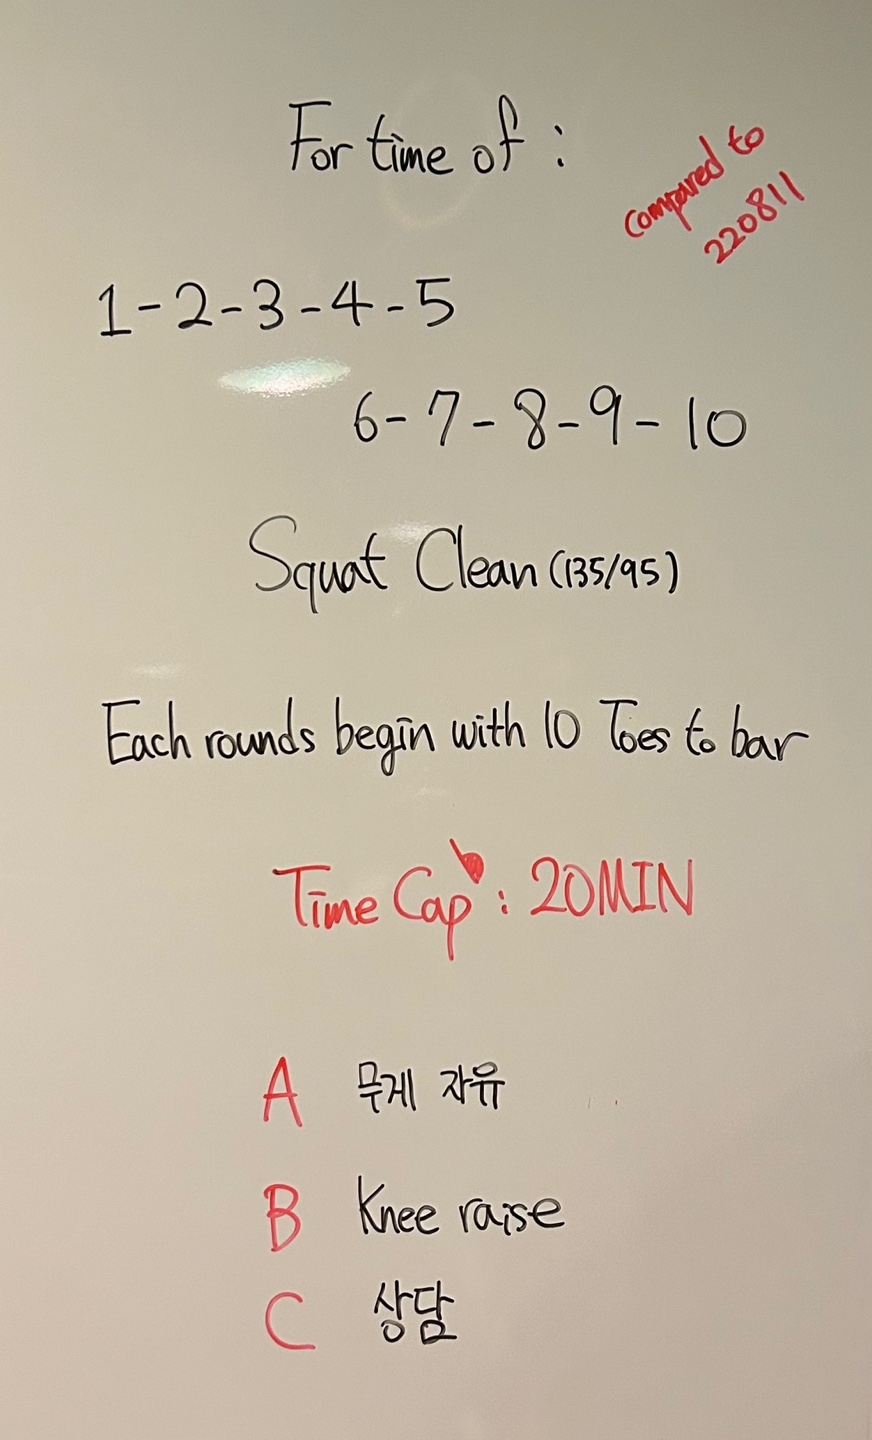 For time of :
compared to
220811
1-2-3-4-5
6-7-8-9-10
Squat Clean (135/95)
Each rounds begin with 10 Toes to bar
Time Cap : 20MIN
A 무게 자유
B Knee raise
C 상담